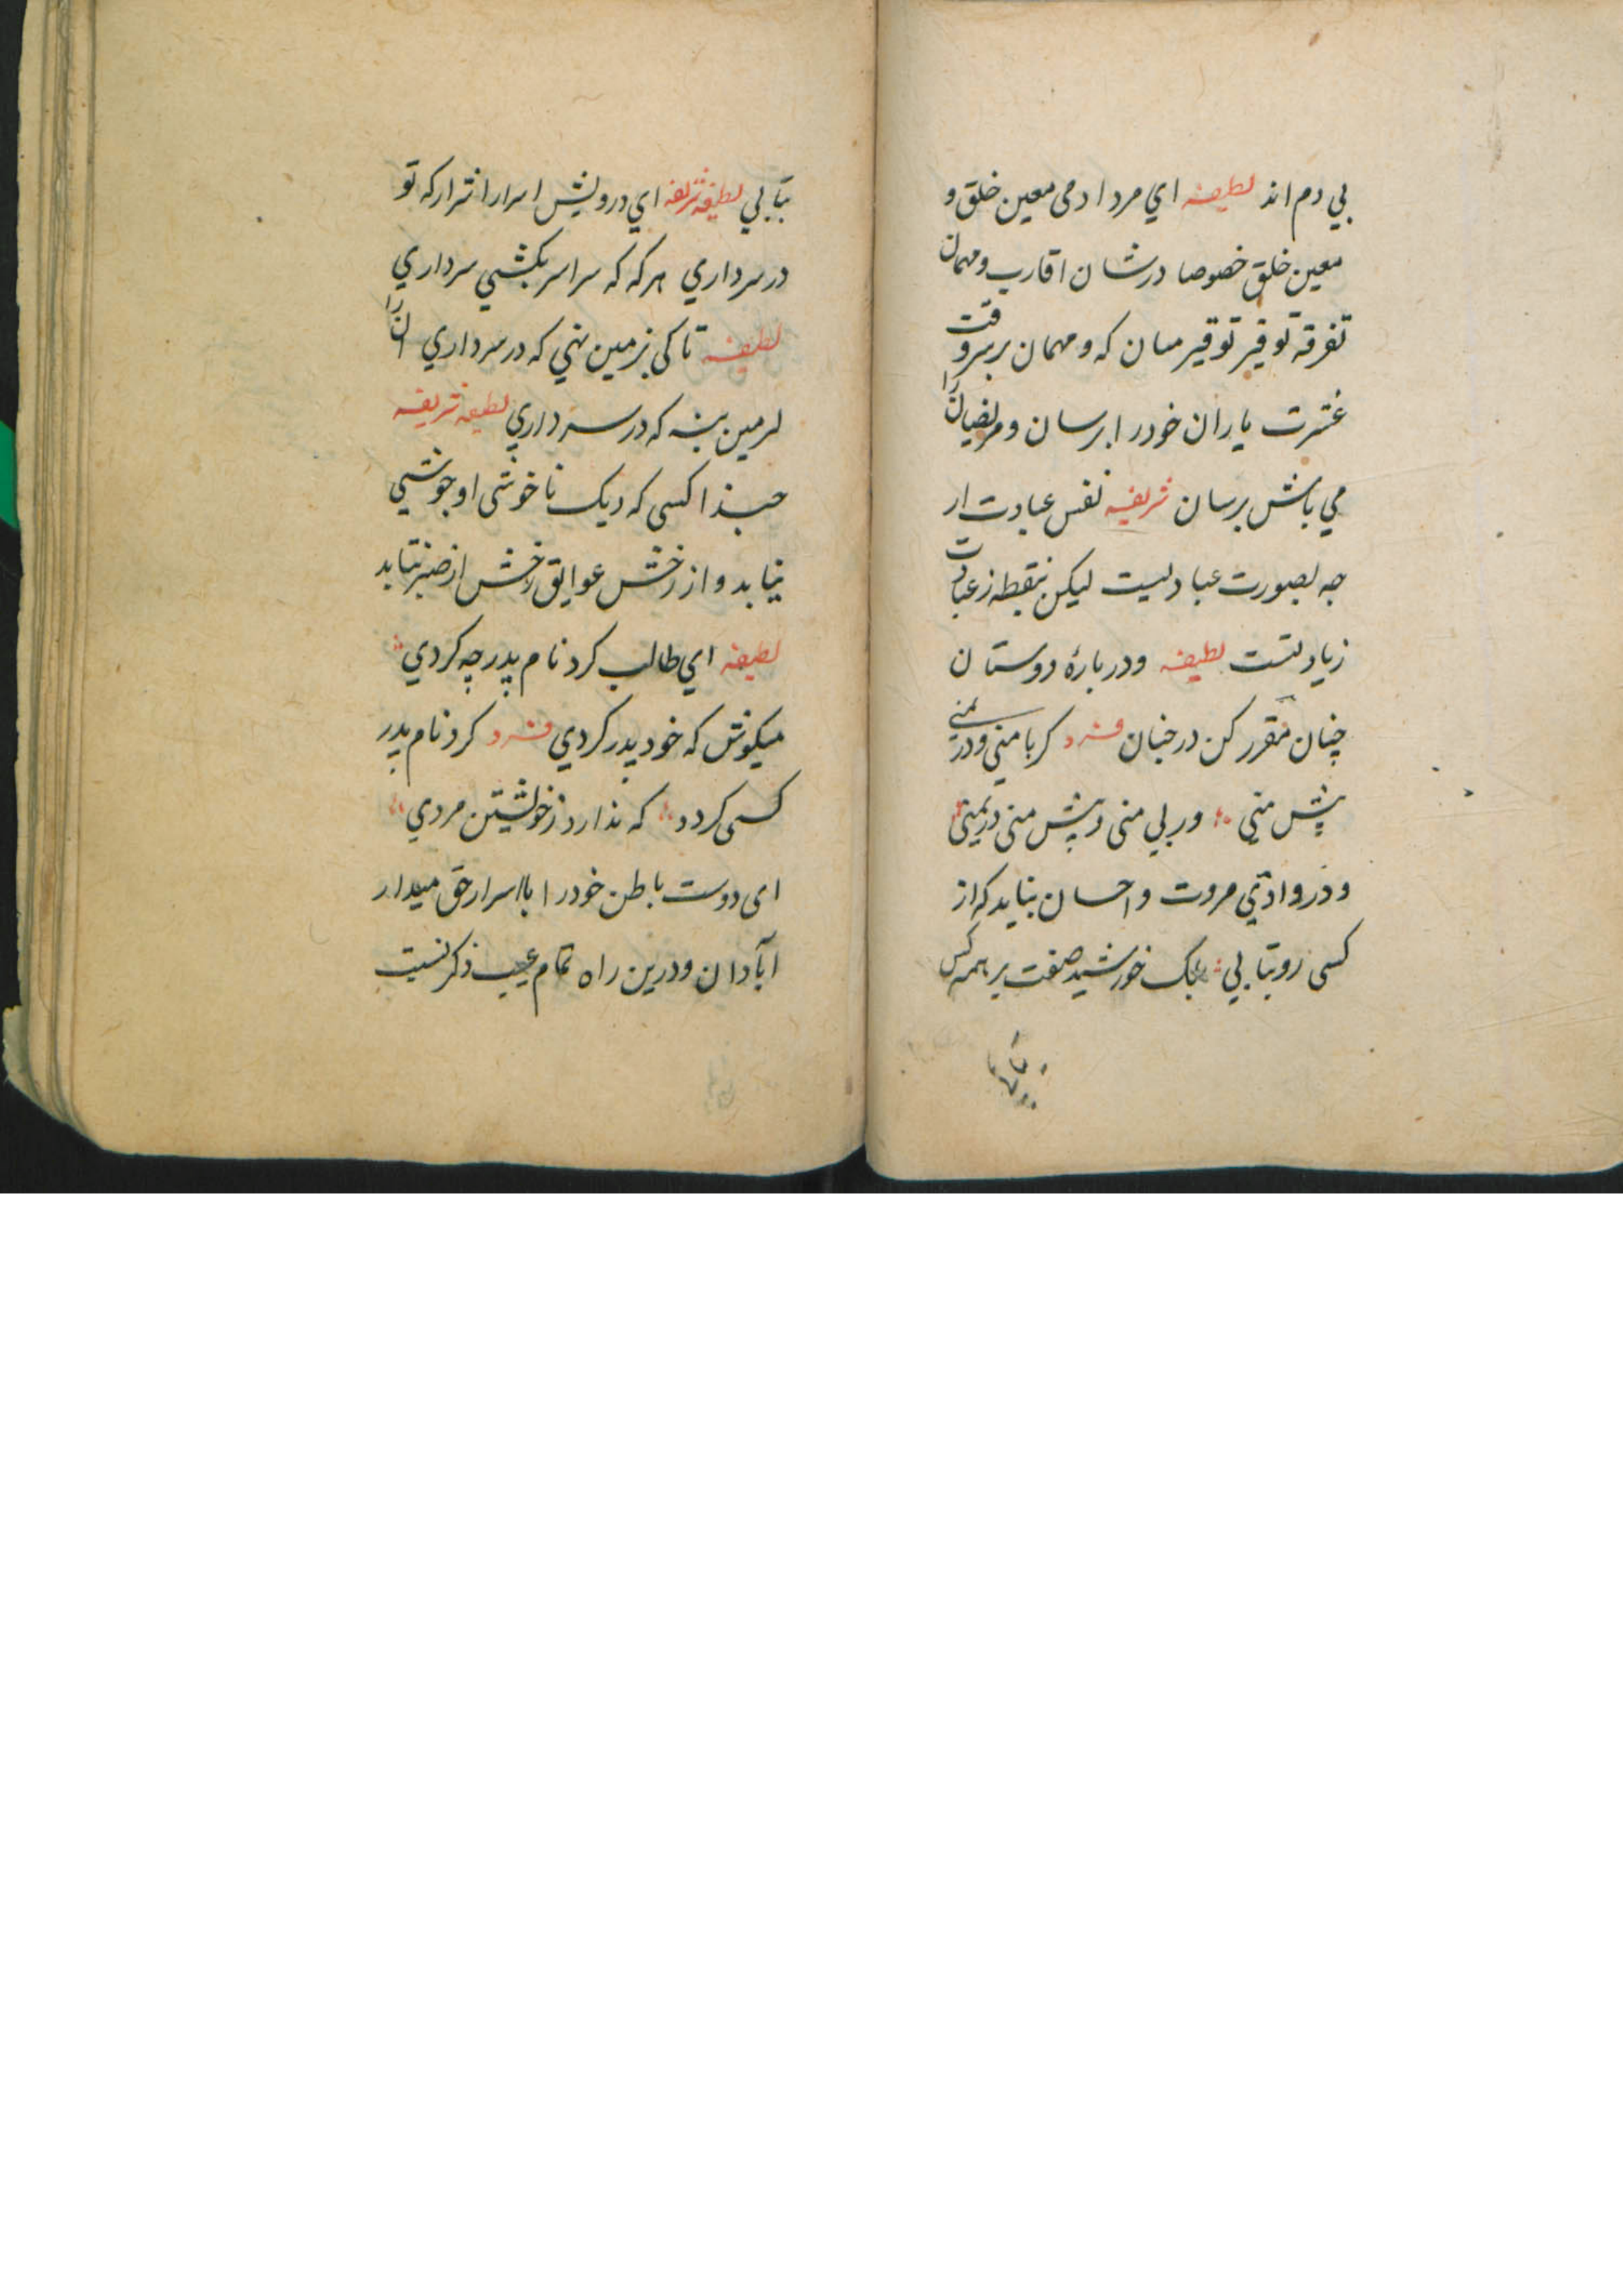 بي دم اند لطيفه اي مرد ادمی معين خلق و
معين خلق خصوصا درشان اقارب و مهمان
تفرقه توقير توقير مسان که و مهمان بر سر وقت
عشرت ياران خود را برسان و مريضان را
مي باش برسان شريفه نفس عبادت ار
چه بصورت عبادتست ليکن بنقطه ز عبادت
زيادتست لطيفه و دربارۀ دوستان
چنان مقرر کن در جنان فرد کر با مني و در يمني
پيش مني ور بي مني و پيش مني در يمني
و در وادئي مروت و احسان بنايد که از
کسی رو بتابي بلک خورشيد صفت بر همه کس
بتابي لطيفه شريفه اي درويش اسرار را نثرار که تو
در سرداري هر که که سر اسر بکشي سرداري
لطيفه تا کی بزمين نهي که در سرداري ان را
لر مين بنه که در سر داري لطيفه شريفه
حبذا کسی که ديک ناخوشی او جوشي
نيابد و از زخش عوايق رخش از صبر نتابد
لطيفه اي طالب کرد نام پدر چه کردي
ميکوش که خود پدر کردي فرد کرد نام پدر
کسی کردد که ندارد ز خويشتن مردي
ای دوست باطن خود را با اسرار حق ميدار
آبادان و درين راه تمام عيب ذکر نيست